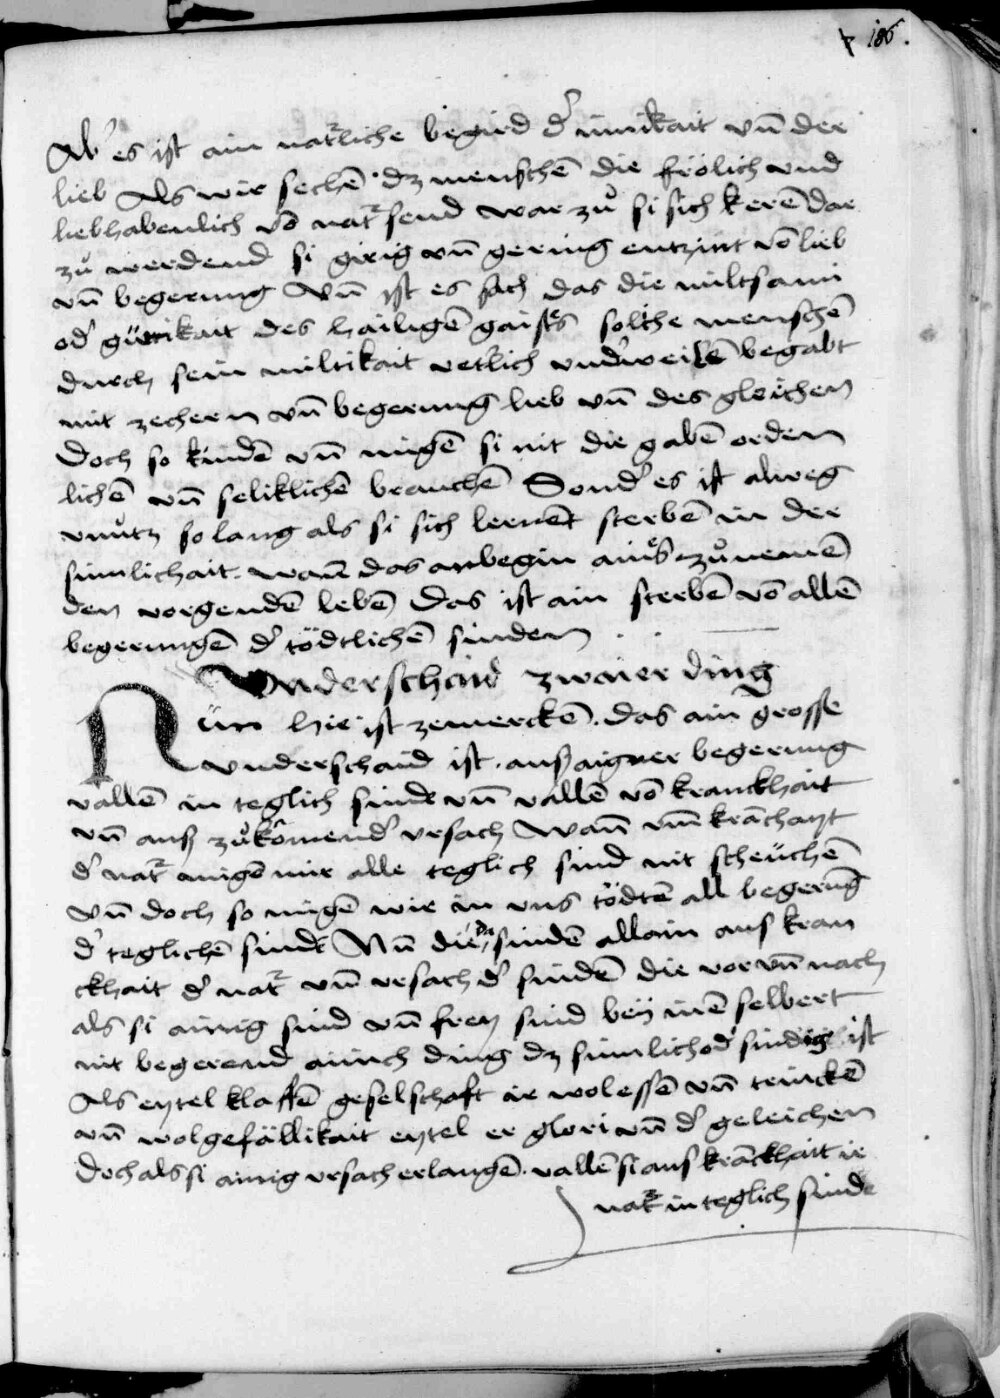 186.
Ab' es ist ain natʳliche begird d' innikait vn̄ der
lieb Als wir sechē dz menschē die frölich vnd
liebhabenlich vō natʳ send war zů si sich kerē dar
zů werdend si girig vn̄ gering entzint vō lieb
vn̄ begerung Vn̄ ist es sach das die miltsami
od' güttikait des hailigē gaistes solche menschē
durch sein miltikait etlich vnd'weilē begabt
mit zechern vn̄ begerung lieb vn̄ des gleichen
Doch so kindē vn̄ migē si nit die gabē orden
lichē vn̄ seliklichē brauchē Sond' es ist alweg
vnutz so lang als si sich lernēt sterbē in der
sinnlichait. wann das anbegin ains zůnemē
den vorgendē lebē Das ist ain sterbē vō allē
begerungē d' tödtlichē sinden
Vnderschaid zwaier ding
Nun hie ist zemerckē. das ain grosse
vnderschaid ist. auß aigner begerung
vallē in teglich sinde vn̄ vallē vō kranckhait
vn̄ auß zůkōmend' vrsach Wann vm̄ krāchayt
d' natʳ migē mir alle teglich sind nit scheüchē
Vn̄ doch so mügē wir in vns tödtē all begerūg
d' teglichē sinde Nū die sindē allain aus kran
ckhait d' natʳ vn̄ vrsach d' sindē die vor vn̄ nach
als si ainig sind vn̄ frey sind bey inē selbert
nit begerend ainich ding dz sinnlich od' sindig ist
Als eytel klaffē geselschaft ir wolessē vn̄ trinckē
vn̄ wolgefällikait eytel er glori vn̄ d' geleichen
Doch als si ainig vrsach erlangē. vallē si aus krāckhait ir
natʳ in teglich sinde